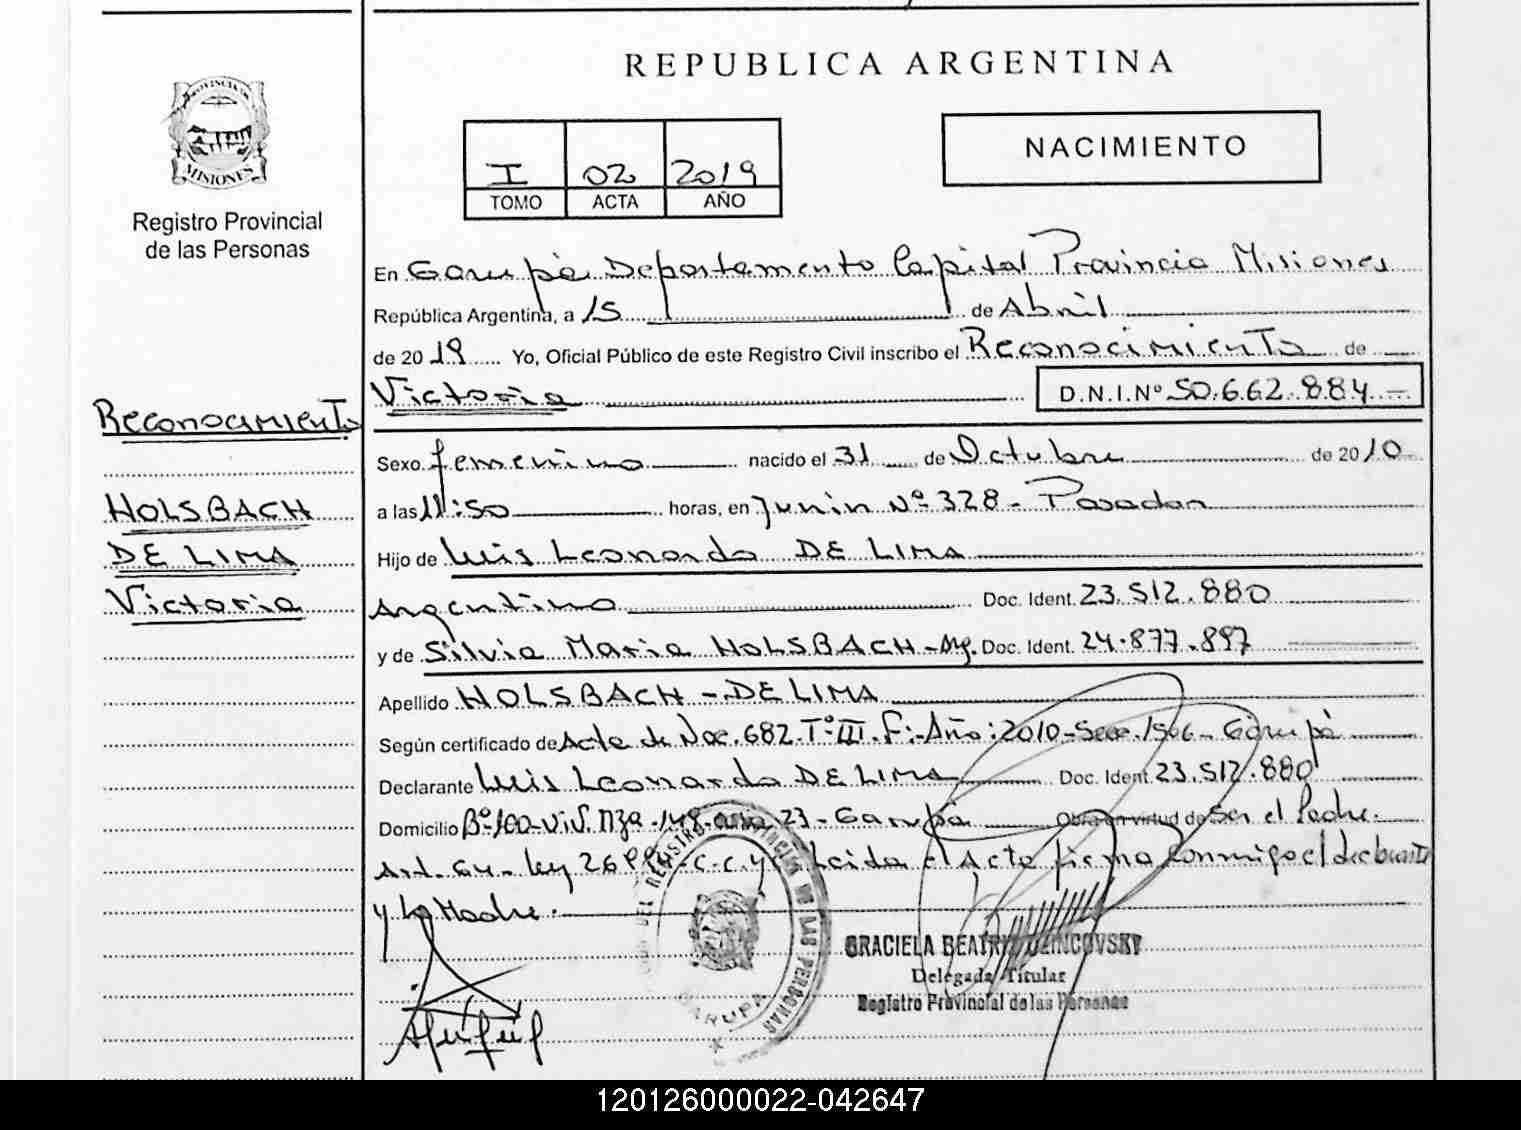 REPUBLICA ARGENTINA
PROVINCIA DE
MISIONES
Registro Provincial
de las Personas
I 02 2019
TOMO ACTA AÑO
NACIMIENTO
En Garupá Departamento Capital Provincia Misiones
República Argentina, a 15 de Abril
de 2019 Yo, Oficial Público de este Registro Civil inscribo el Reconocimiento de
Victoria D.N.I.Nº 50.662.884.-
Reconocimiento
HOLSBACH
DE LIMA
Victoria
Sexo femenino nacido el 31 de Octubre de 2010
a las 11:50 horas, en Junín Nº 328 - Posadas
Hijo de Luis Leonardo DE LIMA
Argentino Doc. Ident. 23.512.880
y de Silvia Maria HOLSBACH - Arg. Doc. Ident. 24.877.897
Apellido HOLSBACH - DE LIMA
Según certificado de Acta de Nac. 682. Tº III. Año: 2010 - Garupá
Declarante Luis Leonardo DE LIMA Doc. Ident. 23.512.880
Domicilio Bº 100 Viv. Mza. 148 23 - Garupá Obra en virtud de Ser el Padre.
Art. Ley C.C. y Leida el Acta firma conmigo el declarante
y la Madre.
DEL REGISTRO PROVINCIAL DE LAS PERSONAS
GARUPA
GRACIELA
Delegada Titular
Registro Provincial de las Personas
120126000022-042647